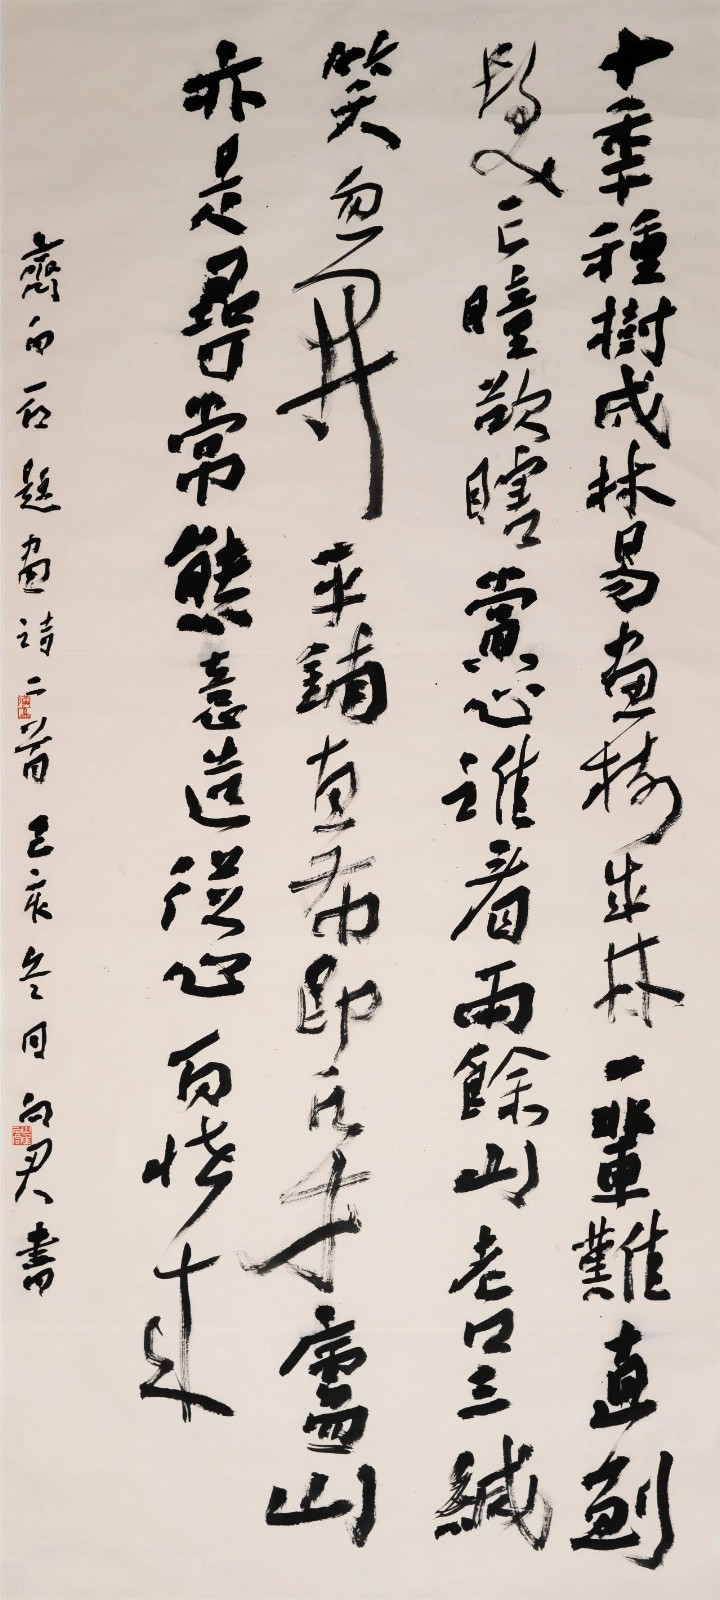 十年種樹成林易畫樹成林一輩難直到
髮亡瞳欲瞎賞心誰看雨餘山老口三緘
笑忽開平鋪直布即凡才廬山
亦是尋常態意造從心百怪來
齊白石題畫詩二首己亥冬月向君書